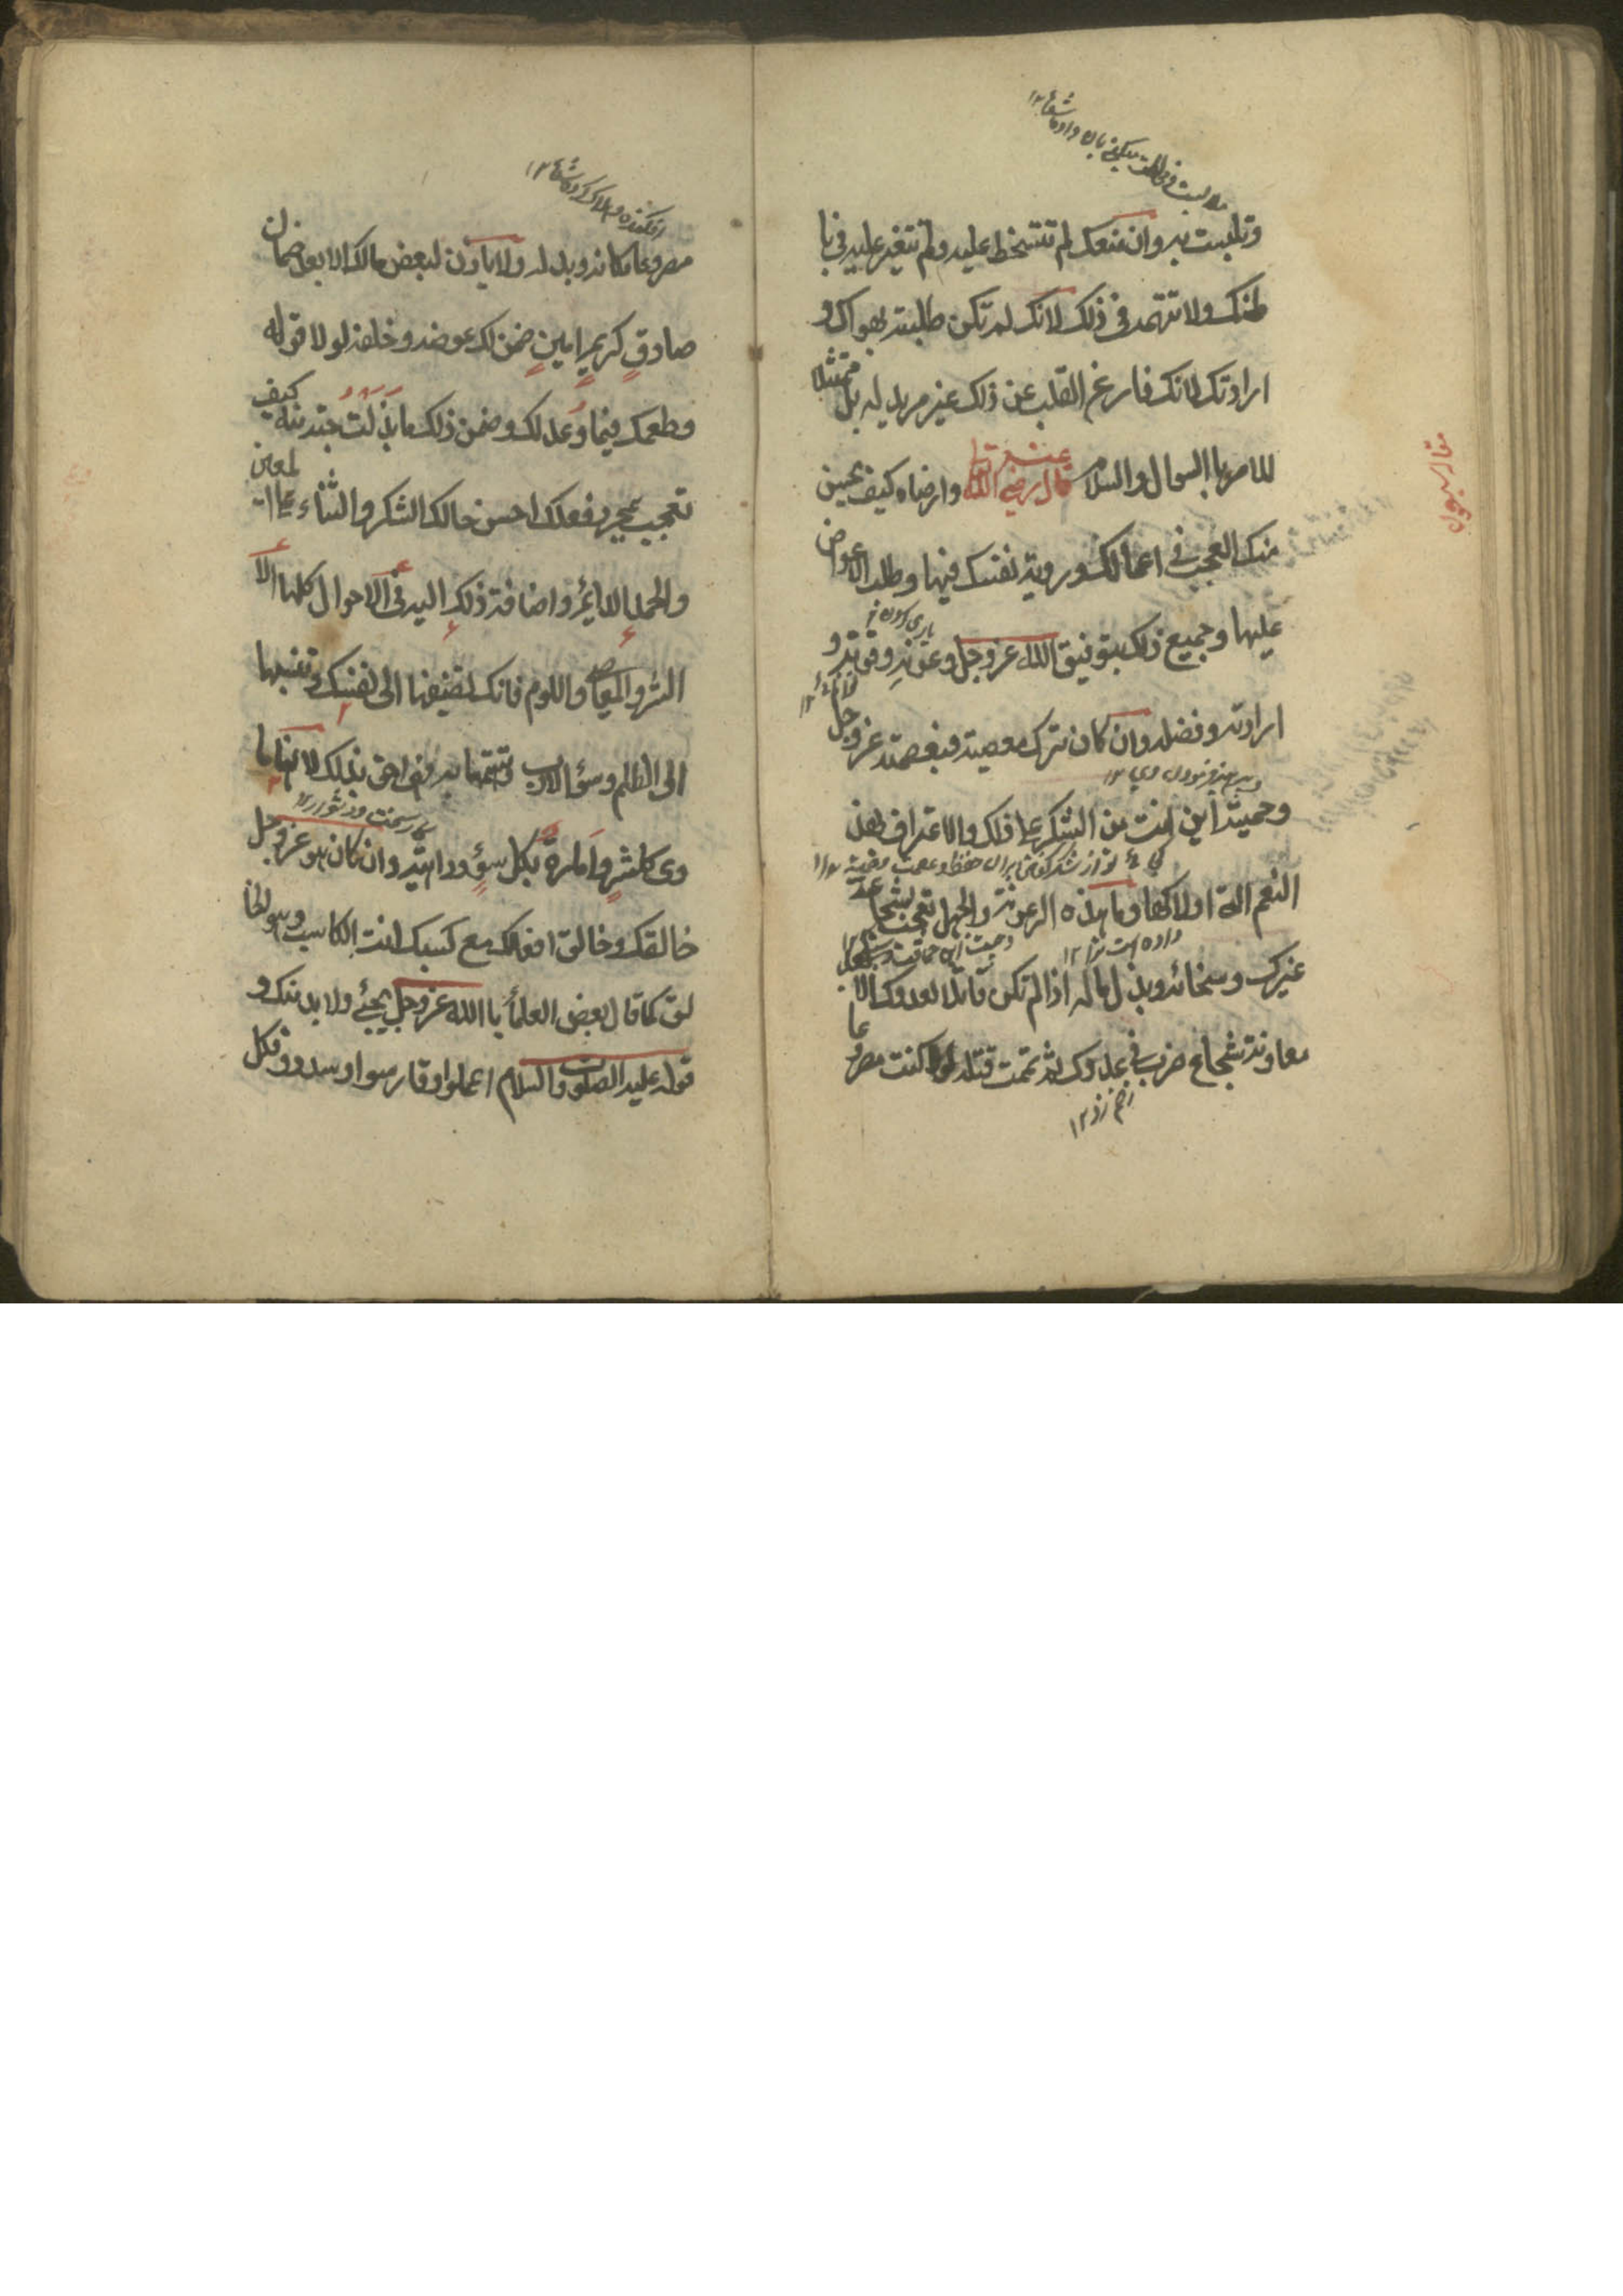 وتلبست به وان منعك لم تتسخط عليه ولم تتغير عليه في با
طنك ولا تتهمه في ذلك لانك لم تكن طلبته بهواك و
ارادتك لانك فارغ القلب عن ذلك غير مريد له بل ممتثلا
للامر بالسوال والسلام قال رضي الله تعالى عنه وارضاه كيف يحسن
منك العجب في اعمالك وروية نفسك فيها وطلب الاعواض
عليها وجميع ذلك بتوفيق الله عز وجل وعونه وقوته و
ارادته وفضله وان كان ترك معصية فبعصمته عز وجل
وحميته اين انت من الشكر على ذلك والاعتراف بهذه
النعم التي اولاكها وما هذه الرعونة والجهل تعجب بشجاعة
غيرك وسخائه وبذل ماله اذا لم تكن قاتلا لعدوك الا
معاونة شجاع ضرب في عدوك ثم تممت قتله لولاه كنت مصروعا
زخم زد ١٢
مصروعا مكانه وبدله ولا باذن لبعض مالك الا بعد ضمان
صادق كريم امين ضمن لك عوضه وخلفه لولا قوله
وطمعك فيما وعد لك وضمن ذلك ما بذلت حبة منه كيف
تعجب بمجرد فعلك احسن حالك الشكر والثناء على المعين
والحمد الدايم واضافة ذلك اليه في الاحوال كلها الا
الشر والمعاصي واللوم فانك تضيفها الى نفسك وتنسبها
الى الظلم وسوء الادب وتتهمها به فهي احق بذلك لانها ما
وى كل شر وامارة بكل سوء وداهية وان كان هو عز وجل
خالقك وخالق افعالك مع كسبك انت الكاسب وهو الخا
لق كما قال بعض العلماء بالله عز وجل يجئ ولا بد منك و
قوله عليه الصلوة والسلام اعملوا وقاربوا وسددوا فكل